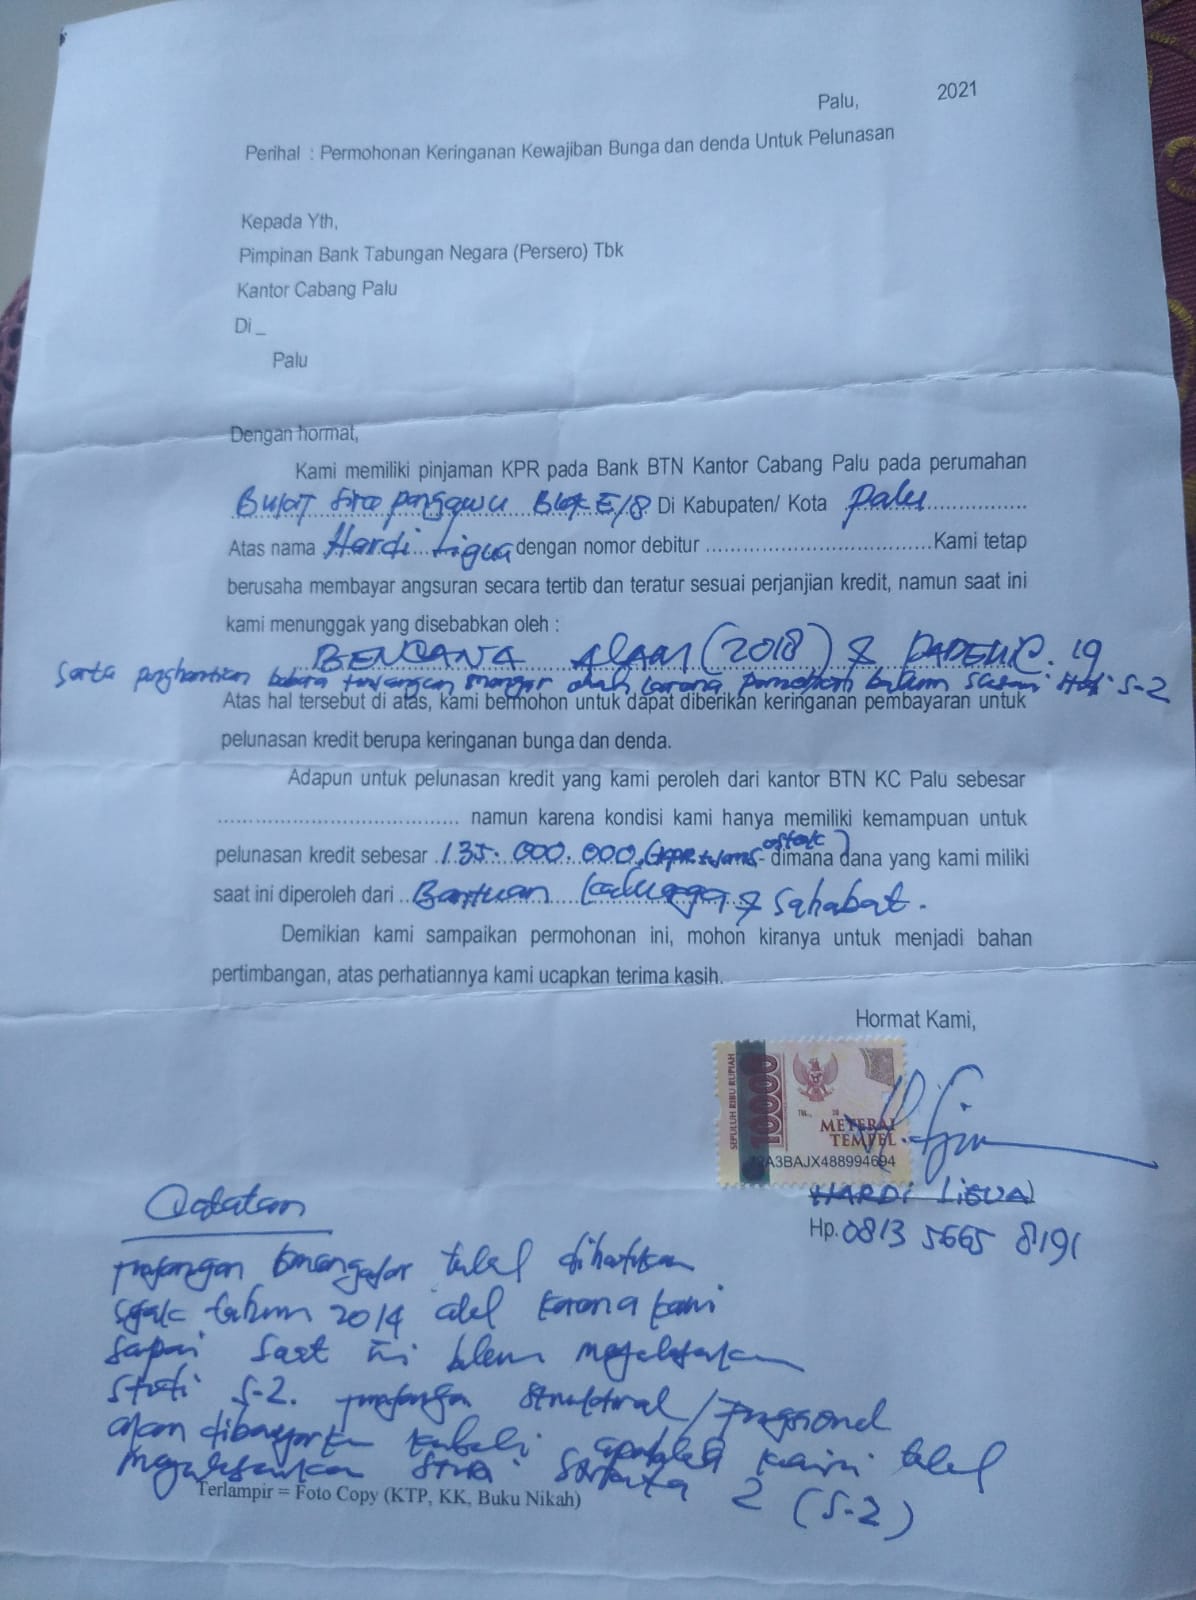 Palu, 2021
Perihal : Permohonan Keringanan Kewajiban Bunga dan denda Untuk Pelunasan
Kepada Yth,
Pimpinan Bank Tabungan Negara (Persero) Tbk
Kantor Cabang Palu
Di _
Palu
Dengan hormat,
Kami memiliki pinjaman KPR pada Bank BTN Kantor Cabang Palu pada perumahan
Blok E/8 Di Kabupaten/ Kota Palu
Atas nama Hardi Ligua dengan nomor debitur ........................................ Kami tetap
berusaha membayar angsuran secara tertib dan teratur sesuai perjanjian kredit, namun saat ini
kami menunggak yang disebabkan oleh :
BENCANA ALAM (2018) & 19
Serta penghentian mengajar S-2
Atas hal tersebut di atas, kami bermohon untuk dapat diberikan keringanan pembayaran untuk
pelunasan kredit berupa keringanan bunga dan denda.
Adapun untuk pelunasan kredit yang kami peroleh dari kantor BTN KC Palu sebesar
...................................... namun karena kondisi kami hanya memiliki kemampuan untuk
pelunasan kredit sebesar 135.000.000, dimana dana yang kami miliki
saat ini diperoleh dari Bantuan keluarga & Sahabat.
Demikian kami sampaikan permohonan ini, mohon kiranya untuk menjadi bahan
pertimbangan, atas perhatiannya kami ucapkan terima kasih.
Hormat Kami,
SEPULUH RIBU RUPIAH
10000
METERAI
TEMPEL
A3BAJX488994694
HARDI LIGUA
Hp. 0813 5665 8191
Catatan
tunjangan telah dihentikan
sejak tahun 2014 karena kami
sampai saat ini belum menyelesaikan
Studi S-2. tunjangan Struktural/Fungsional
akan dibayarkan kembali apabila kami telah
menyelesaikan Strata 2 (S-2)
Terlampir = Foto Copy (KTP, KK, Buku Nikah)